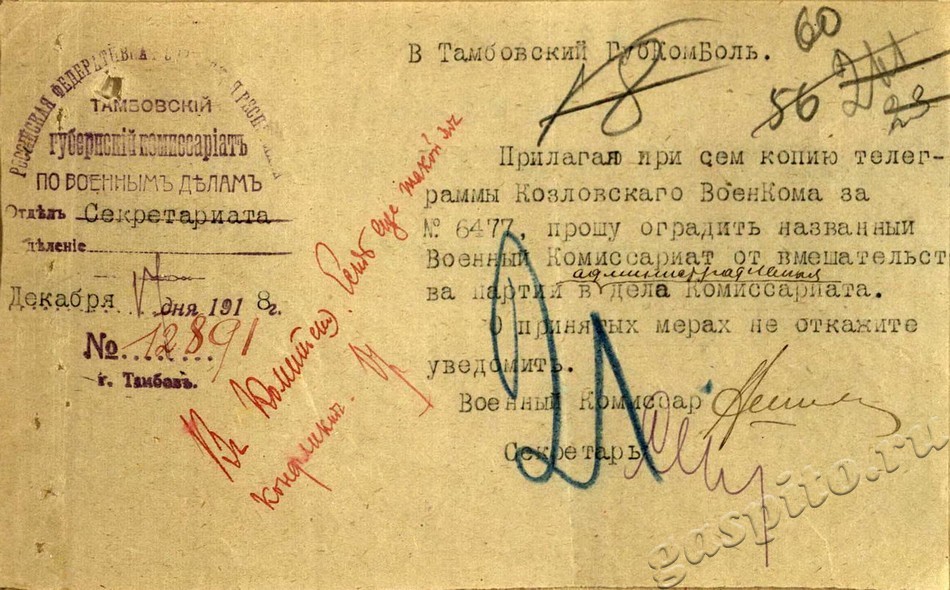 РОССІЙСКАЯ ФЕДЕРАТИВ
ТАМБОВСКІЙ
Губернскій комиссаріатъ
ПО ВОЕННЫМЪ ДѢЛАМЪ
Отдѣлъ Секретариата
дѣленіе
Декабря дня 1918г.
№ 12891
г. Тамбов.
В Тамбовский ГубКомБоль.
60
18
56
23
Прилагая при сем копию телег-
раммы Козловскаго ВоенКома за
№ 6477, прошу оградить названный
Военный Комиссариат от вмешательст
административныя
ва партии в дела Комиссариата.
О принятых мерах не откажите
уведомить.
Военный Комиссар
Секретарь
Въ Комитет
конфликт.
gaspito.ru